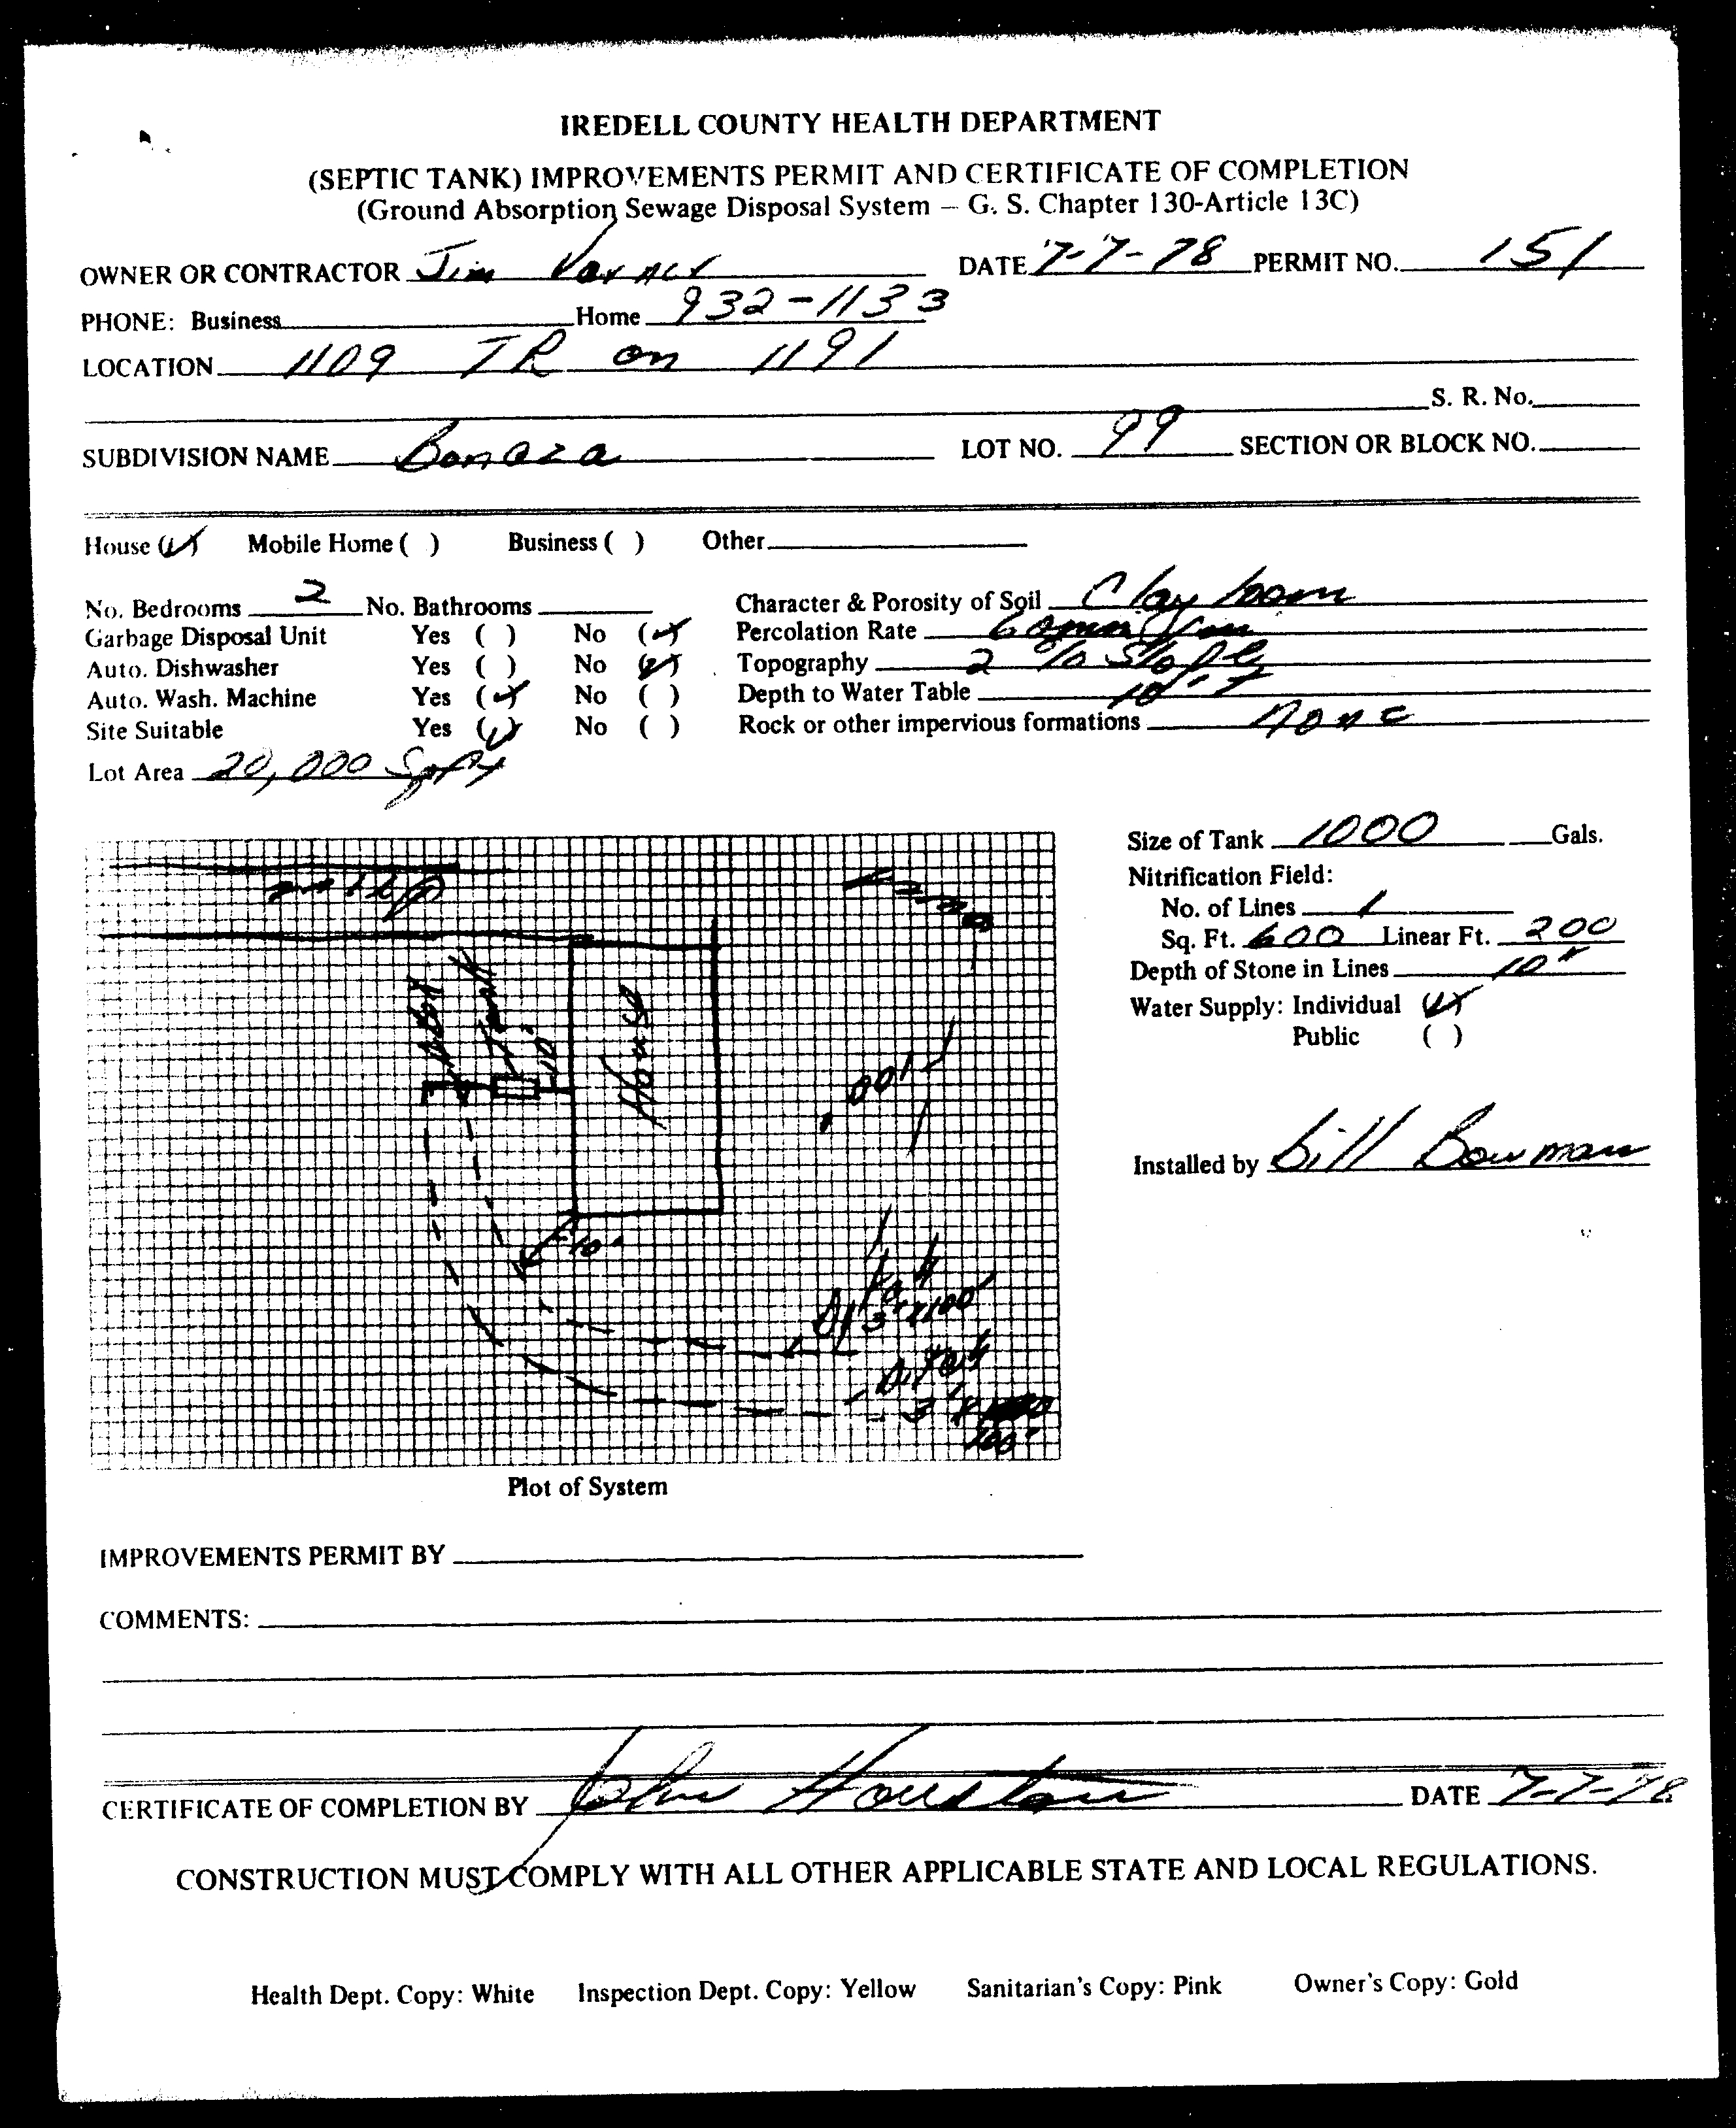 IREDELL COUNTY HEALTH DEPARTMENT
(SEPTIC TANK) IMPROVEMENTS PERMIT AND CERTIFICATE OF COMPLETION
(Ground Absorption Sewage Disposal System – G. S. Chapter 130-Article 13C)
OWNER OR CONTRACTOR Jim DATE 7-7-78 PERMIT NO. 151
PHONE: Business Home 932-1133
LOCATION 1109 TR on 1191
S. R. No.
SUBDIVISION NAME Bonaza LOT NO. 99 SECTION OR BLOCK NO.
House (✓) Mobile Home ( ) Business ( ) Other
No. Bedrooms 2 No. Bathrooms Character & Porosity of Soil Clay loam
Garbage Disposal Unit Yes ( ) No (✓) Percolation Rate 60 min
Auto. Dishwasher Yes ( ) No (✓) Topography 2 % Slope
Auto. Wash. Machine Yes (✓) No ( ) Depth to Water Table 10' +
Site Suitable Yes (✓) No ( ) Rock or other impervious formations None
Lot Area 20,000 Sq ft
Size of Tank 1000 Gals.
Nitrification Field:
No. of Lines 1
Sq. Ft. 600 Linear Ft. 200
Depth of Stone in Lines 10"
Water Supply: Individual (✓)
Public ( )
Installed by Bill Bowman
Tank
10'
House
100'
10'
Ditch
3' x 100'
Ditch
3' x
100'
Plot of System
IMPROVEMENTS PERMIT BY
COMMENTS:
CERTIFICATE OF COMPLETION BY John Houston DATE 7-7-78
CONSTRUCTION MUST COMPLY WITH ALL OTHER APPLICABLE STATE AND LOCAL REGULATIONS.
Health Dept. Copy: White Inspection Dept. Copy: Yellow Sanitarian's Copy: Pink Owner's Copy: Gold